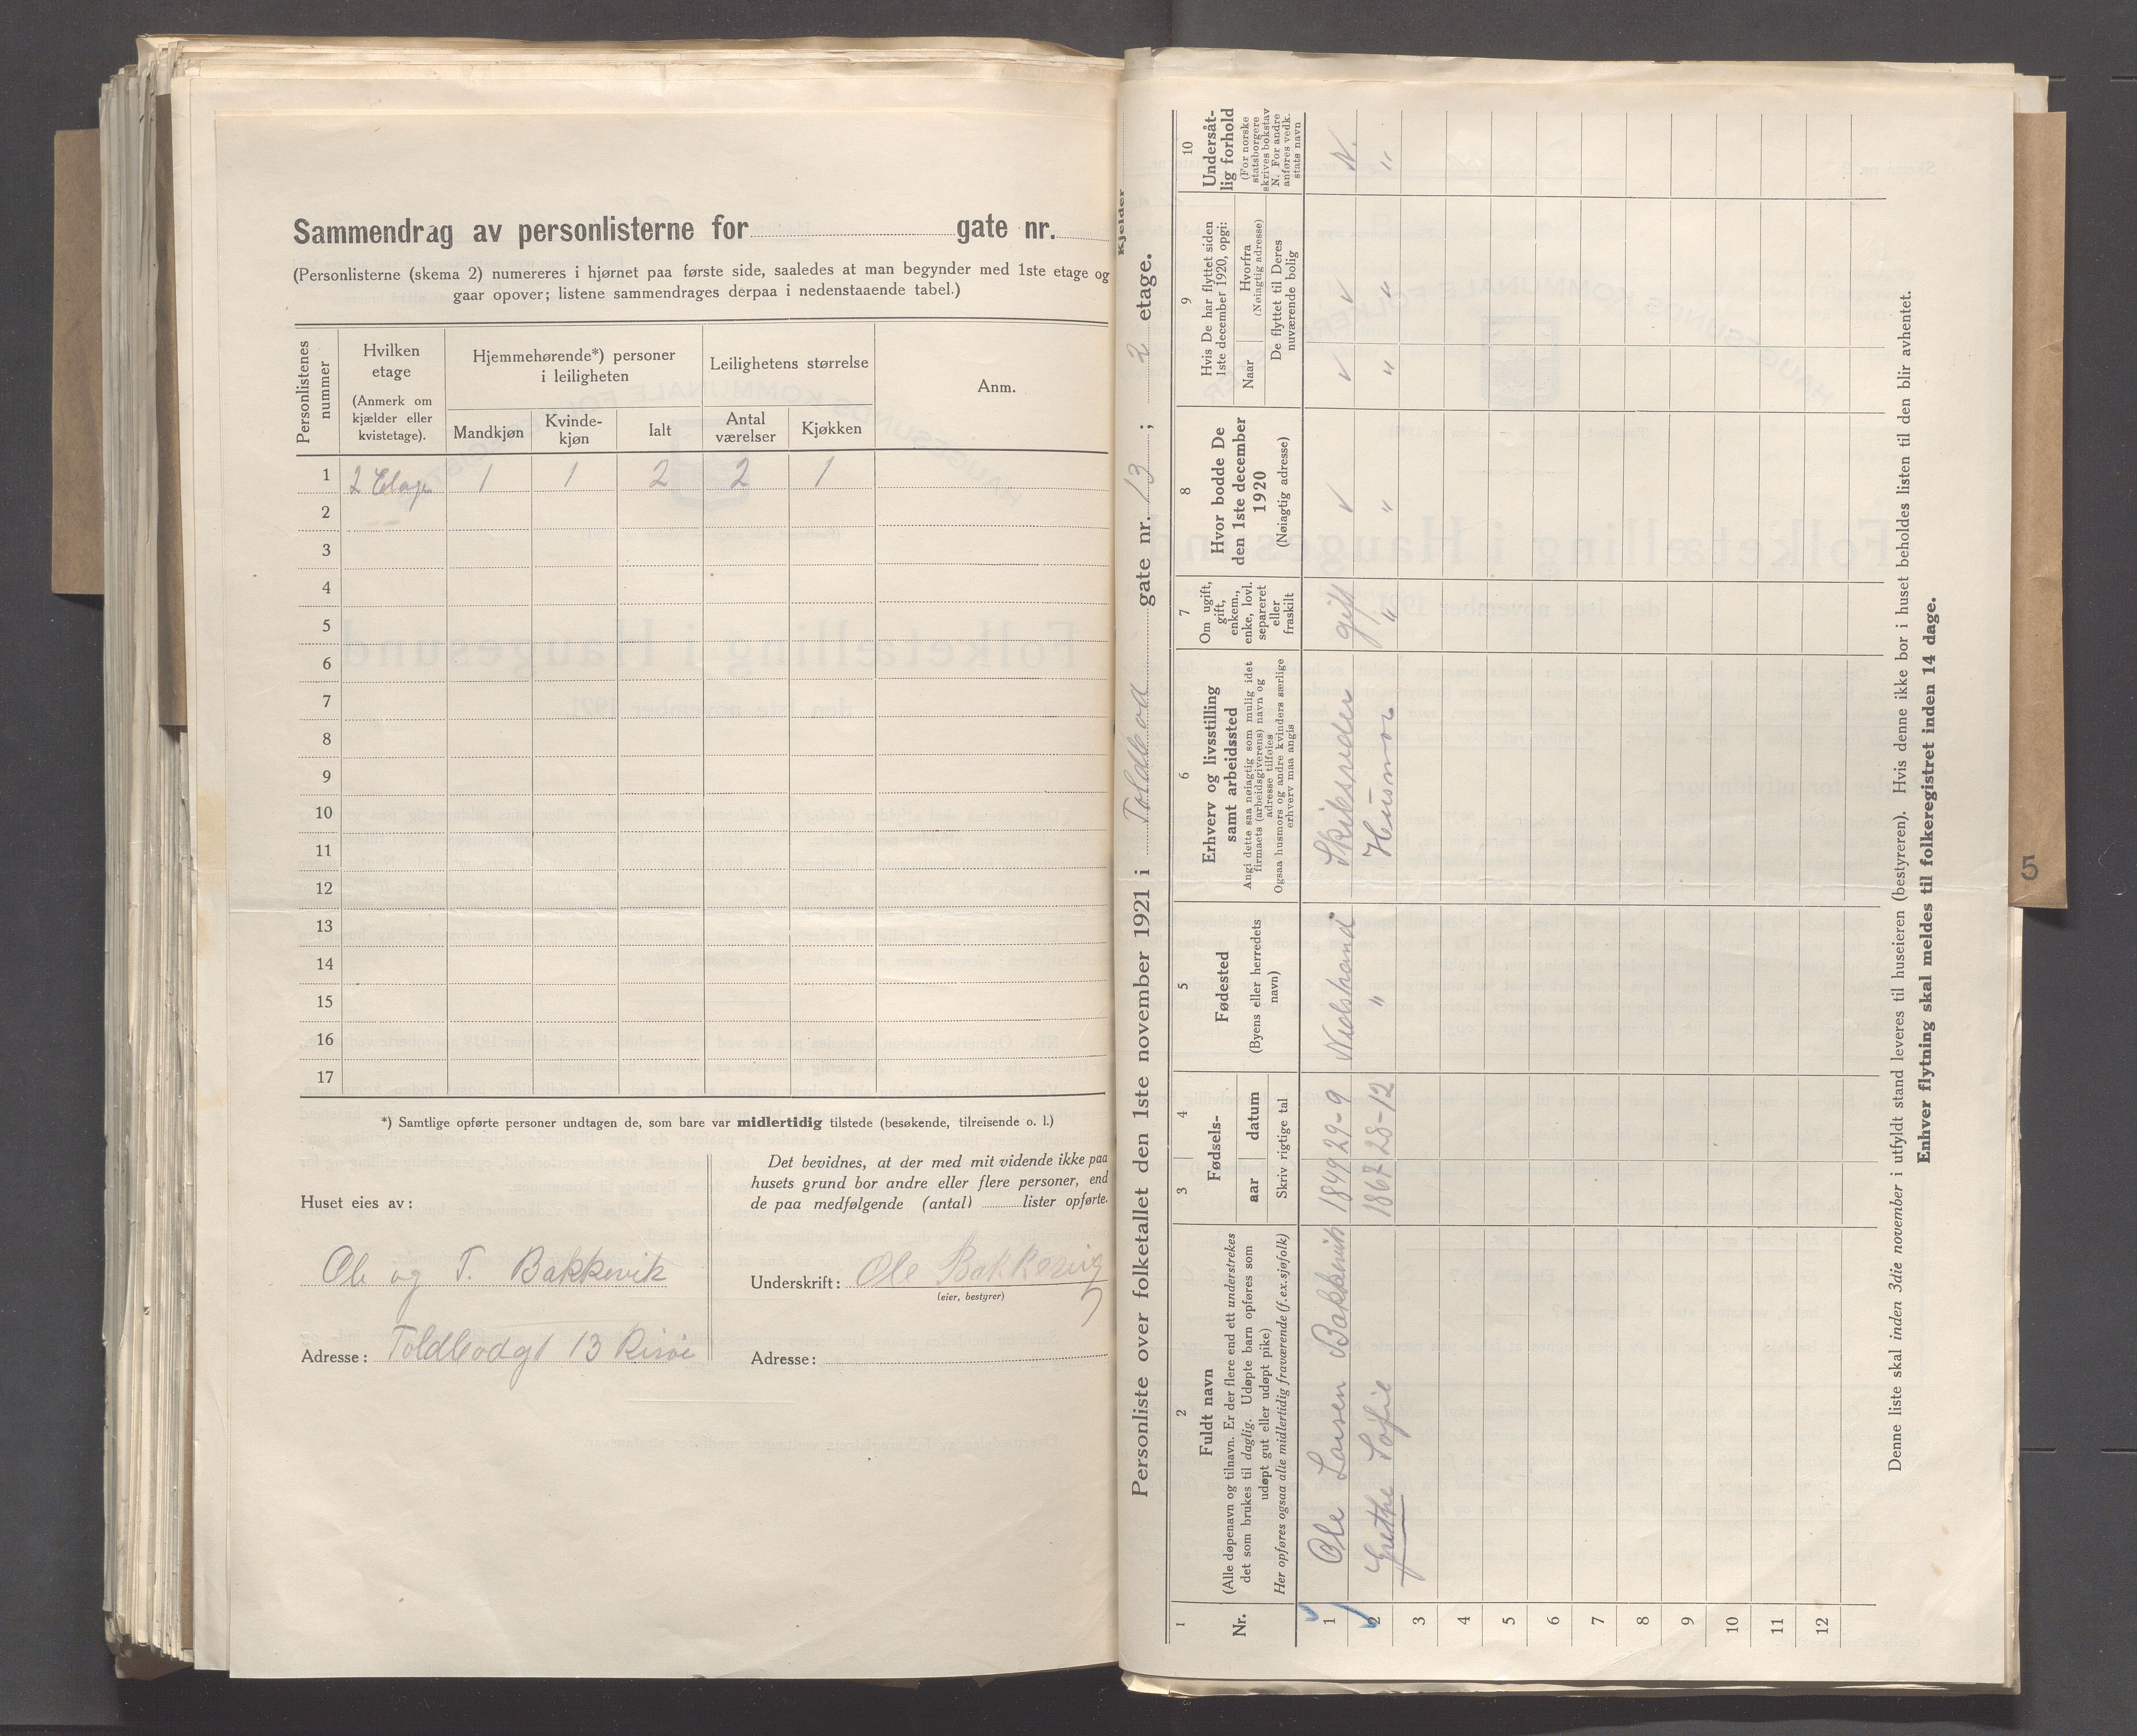 Sammendrag av personlisterne for gate nr.
(Personlisterne (skema 2) numereres i hjørnet paa første side, saaledes at man begynder med 1ste etage og
gaar opover; listene sammendrages derpaa i nedenstaaende tabel.)
Personlistenes nummer
Hvilken etage
(Anmerk om kjælder eller kvistetage).
Hjemmehørende*) personer i leiligheten
Mandkjøn
Kvinde-kjøn
Ialt
Leilighetens størrelse
Antal værelser
Kjøkken
Anm.
1 2 Etage 1 1 2 2 1
2
3
4
5
6
7
8
9
10
11
12
13
14
15
16
17
*) Samtlige opførte personer undtagen de, som bare var midlertidig tilstede (besøkende, tilreisende o. l.)
Huset eies av:
Ole og T. Bakkevik
Adresse: Toldbodgt 13 Risøe
Det bevidnes, at der med mit vidende ikke paa
husets grund bor andre eller flere personer, end
de paa medfølgende (antal) lister opførte.
Underskrift: Ole Bakkevig
(eier, bestyrer)
Adresse:
Kjelder
Personliste over folketallet den 1ste november 1921 i Toldbod gate nr. 13; 2 etage.
1
Nr.
2
Fuldt navn
(Alle døpenavn og tilnavn. Er der flere end ett understrekes
det som brukes til daglig. Udøpte barn opføres som
udøpt gut eller udøpt pike)
Her opføres ogsaa alle midlertidig fraværende (f.ex.sjøfolk)
3 4
Fødsels-
aar datum
Skriv rigtige tal
5
Fødested
(Byens eller herredets
navn)
6
Erhverv og livsstilling
samt arbeidssted
Angi dette saa nøiagtig som mulig idet
firmaets (arbeidsgiverens) navn og
adresse tilføies
Ogsaa husmors og andre kvinders særlige
erhverv maa angis
7
Om ugift,
gift,
enkem.,
enke, lovl.
separeret
eller
fraskilt
8
Hvor bodde De
den 1ste december
1920
(Nøiagtig adresse)
9
Hvis De har flyttet siden
1ste december 1920, opgi:
Naar
Hvorfra
(Nøiagtig adresse)
De flyttet til Deres
nuværende bolig
10
Undersåt-
lig forhold
(For norske
statsborgere
skrives bokstav
N. For andre
anføres vedk.
stats navn
1 Ole Larsen Bakkevik 1849 29-9 Nedstrand Skibsreder gift √ √ √ N.
2 Grethe Sofie 1867 28-12 " Husmor " " " " "
3
4
5
6
7
8
9
10
11
12
Denne liste skal inden 3die november i utfyldt stand leveres til huseieren (bestyreren). Hvis denne ikke bor i huset beholdes listen til den blir avhentet.
Enhver flytning skal meldes til folkeregistret inden 14 dage.
5